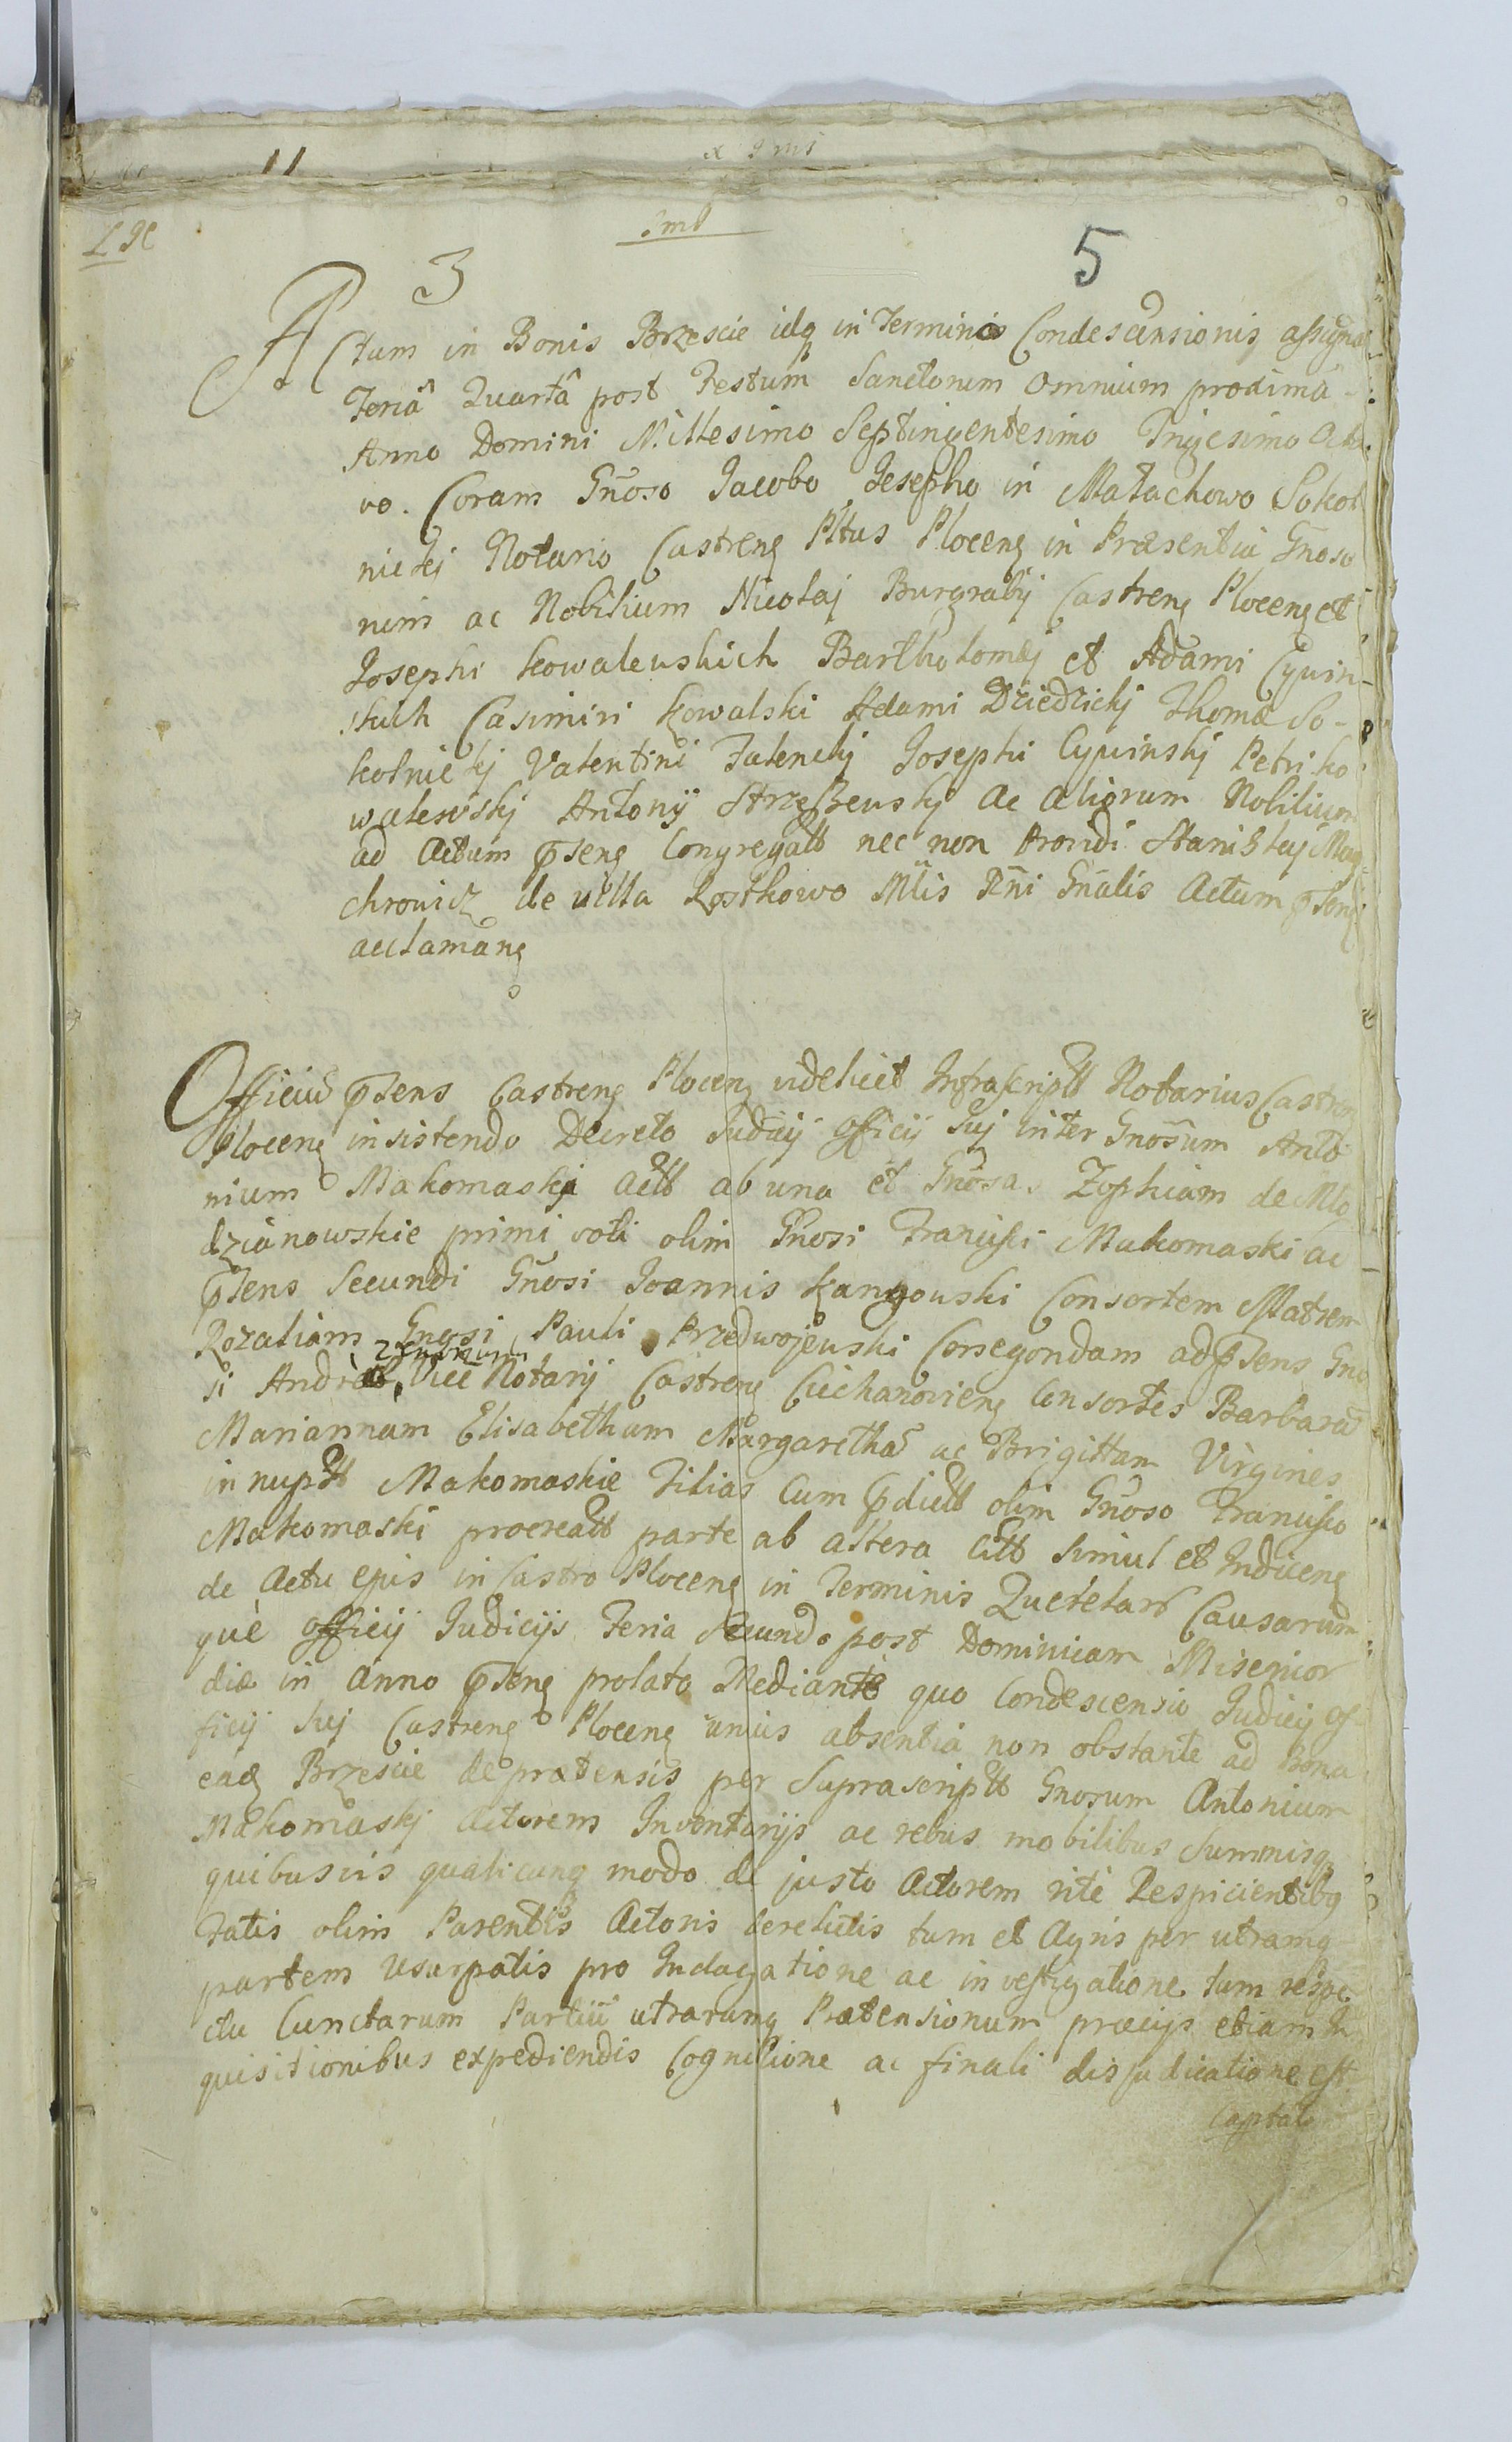 3 5
Actum in Bonis Brzescie idq in Terminis Condescensionis assigna
Feriâ Quartâ post Festum Sanctorum Omnium proximâ
Anno Domini Millesimo Septingentesimo Trigesimo Octa
vo. Coram Gn̄oso Jacobo Josepho in Małachowo Sokol
nickj Notario Castreng Pltus Ploceng in Præsentia Gn̄oso
rum ac Nobilium Nicolaj Burgrabÿ Castreng Ploceng et
Josephi Kowalewskich Bartholomæj et Adami Cywin
skich Casimiri Kowalski Adami Dziedzickj Thomæ So-
kolnickj Valentini Falenckj Josephi Cywinskj Petri Ko
walewskj Antonÿ Strzeszewskj ac aliorum Nobilium
ad Actum p̄seng Congregatt nec non Provīdi Stanislaj Mag
chrowicz de villa Rostkowo Mlis Rn̄i Gn̄alis Actum p̄seng
acclamang
Officiū p̄sens Castreng Ploceng videlicet Infrascriptt Notarius Castreng
Ploceng insistendo Decreto Judicÿ Officÿ Suj inter Gn̄osum Anto
nium Makomaskj Actt ab una et Gn̄osa. Zophiam de Mło
dzianowskie primi voti olim Gn̄osi Francisci Makomaski ac
p̄sens Secundi Gn̄osi Joannis Kanigowski Consortem Matrem
Rozaliam Gn̄osi Pauli Przedwojewski Consegondam ad p̄sens Gn̄o
si Andreæ Vice Notarÿ Castreng Ciechanovieng Consortes Barbarā
Mariannam Elisabetham Margarethā ac Brigittam Virgines
innuptt Makomaskie Filias Cum p̄dictt olim Gn̄oso Francisco
Makomaski procreatt parte ab altera Citt Simul et Inducene
de Actu ejus in Castro Ploceng in Terminis Querelarū Causarum
què officÿ Judicÿs Feria Secunda post Dominicam Misericor
diæ in Anno p̄seng prolato Mediante quo Condescensio Judicÿ of
ficÿ Suj Castreng Ploceng unius absentia non obstante ad Bona
eadq Brzescie de prætensis per Suprascriptt Gn̄osum Antonium
Makomaskj Actorem Inventarÿs ac rebus mobilibus Summisq
quibusvis qualicunq modo de justo Actorem ritè Respicientibq
Fatis olim Parentis Actoris derelictis tum et Agris per utramq
partem Usurpatis pro Indagatione ac investigatione tum respe
ctu Cunctarum Partiū utrarunq Prætensionum præcijs etiam In
quisitionibus expediendis Cognitione ac finali disjudicatione est
Captat